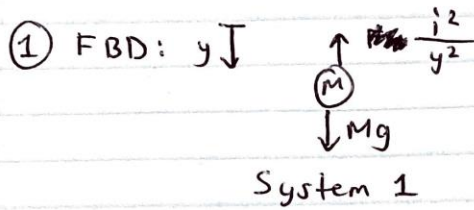 ① FBD: y
i²
y²
M
Mg
System 1